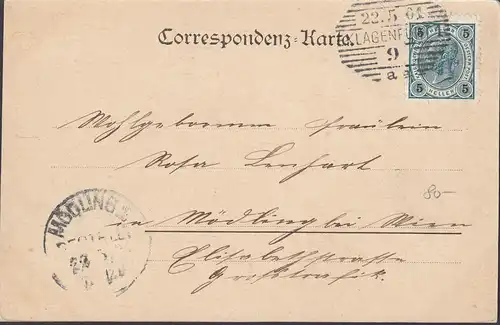 Correspondenz-Karte.
22.5.01
KLAGENFURT
9
a
5 5
HELLER
5 5
Wohlgebornen Fräulein
Rosa Lenhart
80-
in Mödling bei Wien
Elisabethstrasse
Großtrafik.
MÖDLING